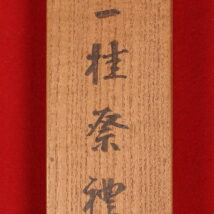 一桂祭禮